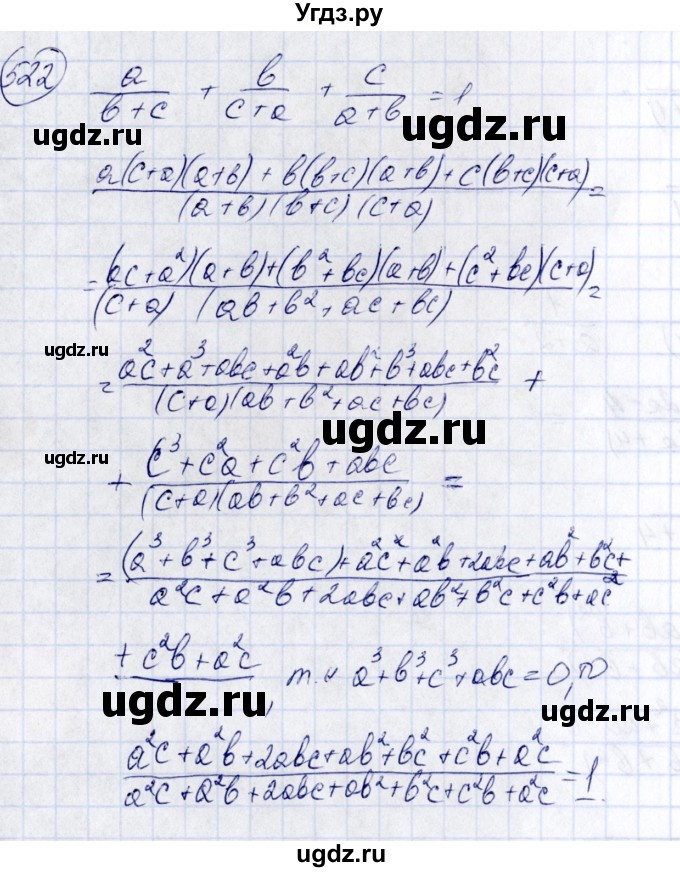 Угдз.ру
522 a/(b+c) + b/(c+a) + c/(a+b) = 1
ugdz.ru ugdz.ru
(a(c+a)(a+b) + b(b+c)(a+b) + c(b+c)(c+a))/((a+b)(b+c)(c+a)) =
= ((ac+a²)(a+b)+(b²+bc)(a+b)+(c²+bc)(c+a))/((c+a)(ab+b²+ac+bc)) =
ugdz.ru
= (a²c+a³+abc+a²b+ab²+b³+abc+b²c)/((c+a)(ab+b²+ac+bc)) +
ugdz.ru
ugdz.ru
+ (c³+c²a+c²b+abc)/((c+a)(ab+b²+ac+bc)) =
= ((a³+b³+c³+abc)+a²c²+a²b+2abc+ab²+b²c+)/(a²c+a²b+2abc+ab²+b²c+c²b+ac²)
+c²b+a²c , т.к a³+b³+c³+abc=0, то
ugdz.ru ugdz.ru
(a²c+a²b+2abc+ab²+bc²+c²b+a²c)/(a²c+a²b+2abc+ab²+b²c+c²b+a²c) = 1.
ugdz.ru